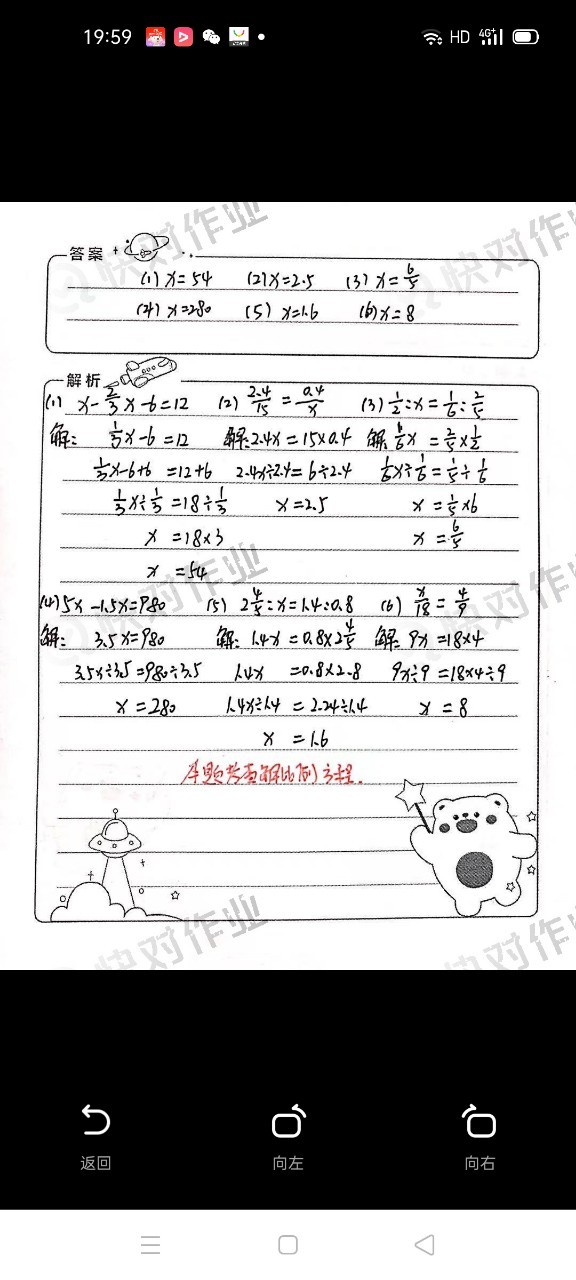 19:59 HD 4G+
快对作业
快对作
答案
(1) x=54 (2) x=2.5 (3) x=6/5
(4) x=280 (5) x=1.6 (6) x=8
解析
(1) x-2/3x-6=12 (2) 2.4/15=0.4/x (3) 1/2:x=1/6:2/5
解: 1/3x-6=12 解:2.4x=15×0.4 解:1/6x=2/5×1/2
1/3x-6+6=12+6 2.4x÷2.4=6÷2.4 1/6x÷1/6=1/5÷1/6
1/3x÷1/3=18÷1/3 x=2.5 x=1/5×6
x=18×3 x=6/5
x=54
快对作业
快对作
(4) 5x-1.5x=980 (5) 2 4/5:x=1.4:0.8 (6) x/18=4/9
解: 3.5x=980 解:1.4x=0.8×2 4/5 解:9x=18×4
3.5x÷3.5=980÷3.5 1.4x=0.8×2.8 9x÷9=18×4÷9
x=280 1.4x÷1.4=2.24÷1.4 x=8
x=1.6
本题考查解比例方程.
快对作业
快对作
返回 向左 向右